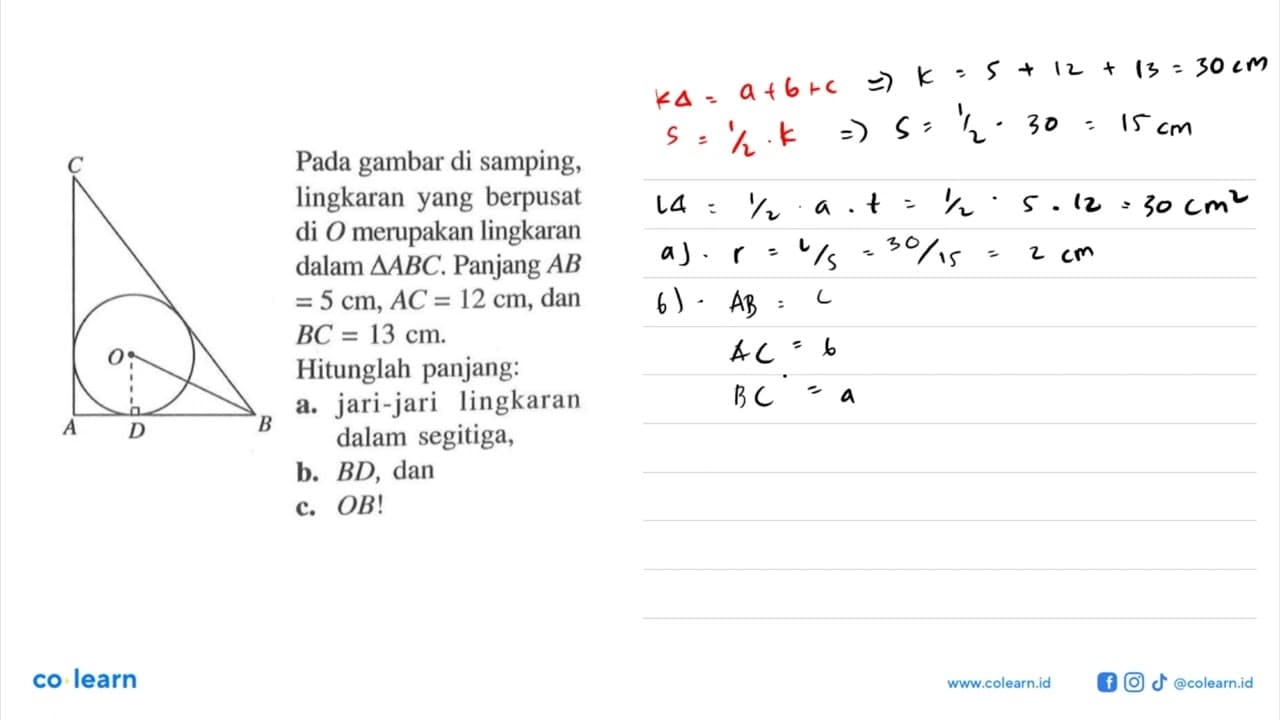 C
A
D
B
O
Pada gambar di samping,
lingkaran yang berpusat
di O merupakan lingkaran
dalam ΔABC. Panjang AB
= 5 cm, AC = 12 cm, dan
BC = 13 cm.
Hitunglah panjang:
a. jari-jari lingkaran
dalam segitiga,
b. BD, dan
c. OB!
KΔ = a + b + c => K = 5 + 12 + 13 = 30 cm
S = 1/2 . k => S = 1/2 . 30 = 15 cm
LΔ = 1/2 . a . t = 1/2 . 5 . 12 = 30 cm²
a). r = L/s = 30/15 = 2 cm
b). AB = c
AC = b
BC = a
co learn
www.colearn.id
@colearn.id